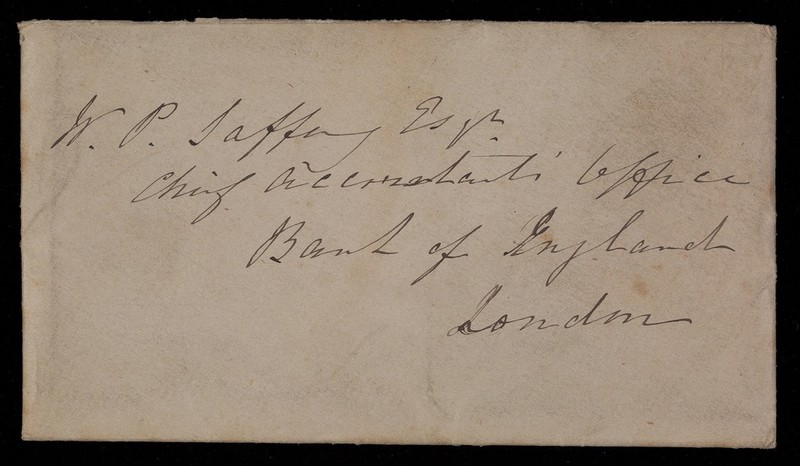 W. P. Saffery Esqr.
Chief Accountants' Office
Bank of England
London